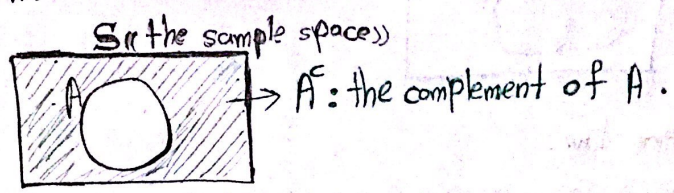 S«the sample space»
A
Aᶜ: the complement of A.